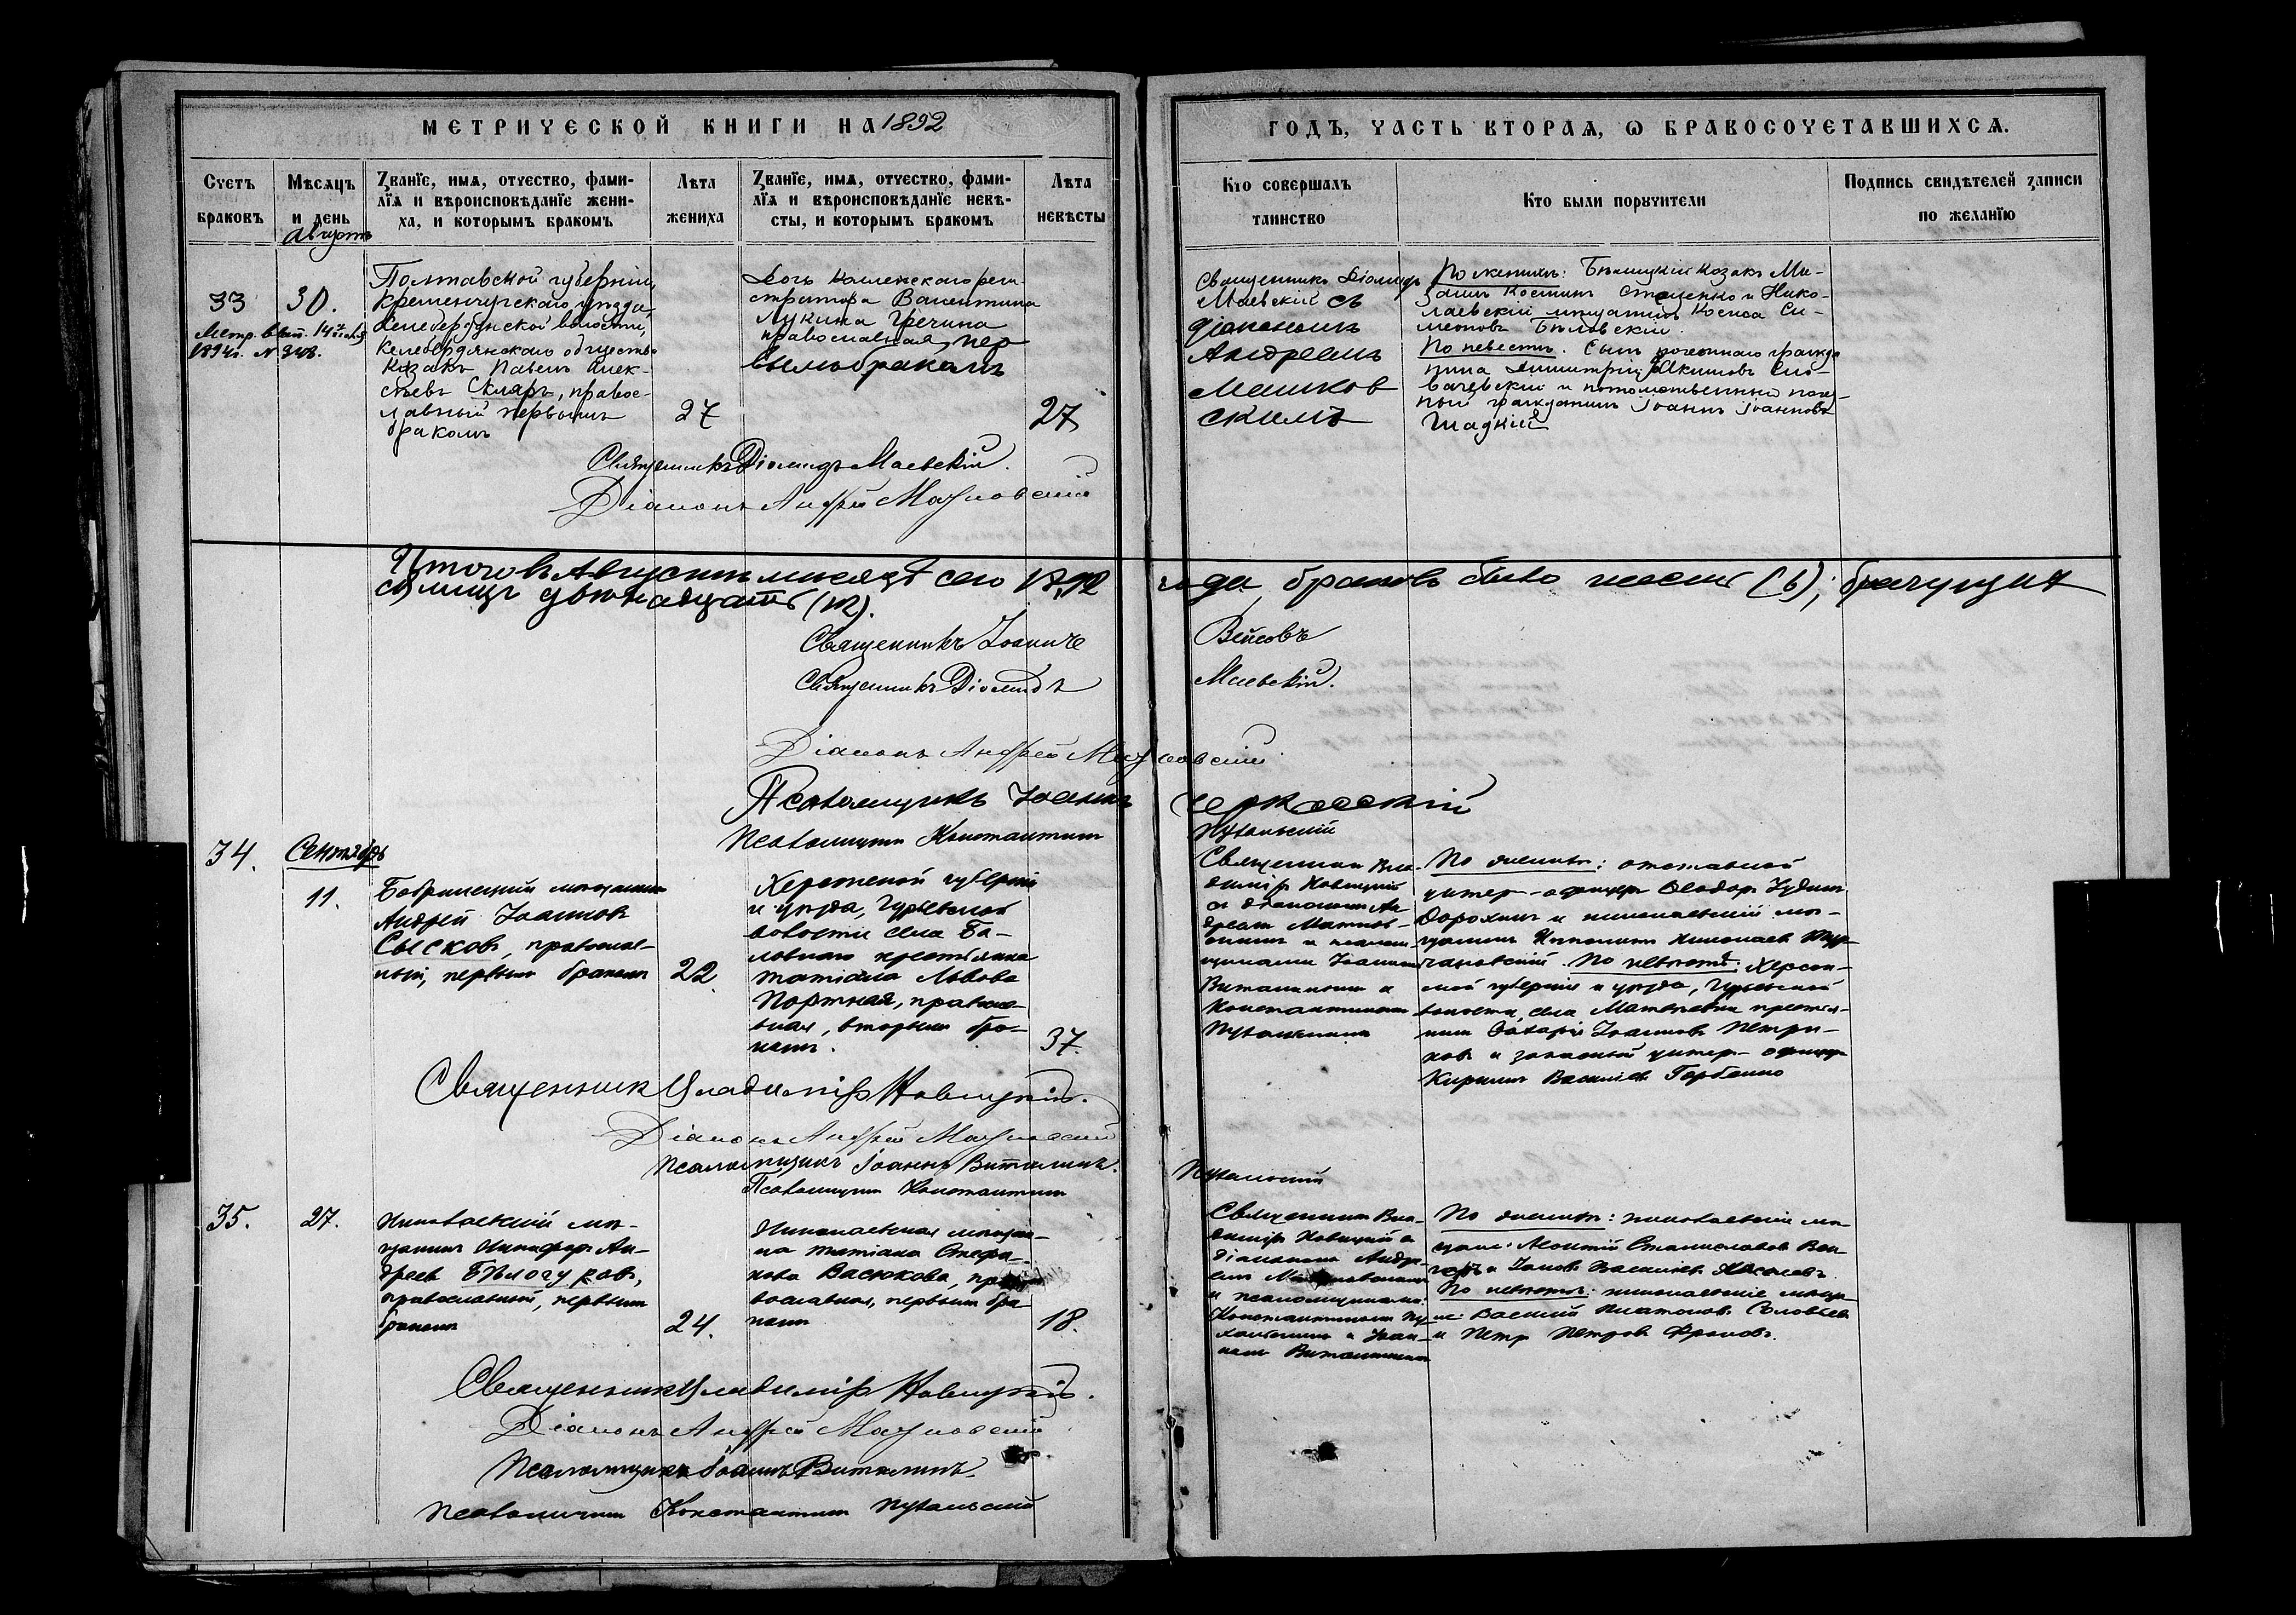 МЕТРИЧЕСКОЙ КНИГИ НА 1892
ГОДЪ, ЧАСТЬ ВТОРАЯ, Ѡ БРАКОСОЧЕТАВШИХСЯ.
Счетъ браковъ
Мѣсяцъ и день
Званїе, имя, отчество, фами-
лїя и вѣроисповѣданїе жени-
ха, и которымъ бракомъ
Лѣта жениха
Званїе, имя, отчество, фами-
лїя и вѣроисповѣданїе невѣ-
сты, и которымъ бракомъ
Лѣта невѣсты
Кто совершалъ таинство
Кто были поручители
Подпись свидѣтелей записи по желанїю
Августъ
33
30.
Метр. вып. 14
1894г. № 348.
Полтавской губерніи,
Кременчугскаго уѣзда,
Келебердянской волости,
Келебердянскаго общества
козакъ Павелъ Алек-
сѣевъ Скляръ, правос-
лавный первымъ
бракомъ
27
Дочь коллежскаго реги-
стратора Валентина
Лукина Гречина
православная, пер
вымъ бракомъ
27
Священникъ Діомидъ
Маевскій съ
діакономъ
Андреемъ
По женихѣ: козакъ
Костинъ Стеценко и Нико-
лаевскій мѣщанинъ Косма Си-
меоновъ Бѣловскій.
По невѣстѣ: Сынъ почетнаго гражда
нина Димитрій Акимовъ
и потомственный поче-
ный гражданинъ Іоаннъ Іоанновъ
Гладкій
Священникъ Діомидъ Маевскій.
Діаконъ Андрей
Итого въ Августѣ мѣсяцѣ сего 1892 года браковъ было шесть (6), брачущихся
лицъ двѣнадцать (12).
Священникъ Іоаннъ
Священникъ Діомидъ Маевскій.
Діаконъ Андрей
Псаломщикъ Іоаннъ Черкасскій
Псаломщикъ Константинъ Пухальскій
34.
Сентябрь
11.
Бобринецкій мѣщанинъ
Андрей Іоанновъ
Сысковъ, православ-
ный, первымъ бракомъ
22.
Херсонской губерніи
и уѣзда, Гурьевской
волости села Ба-
ловнаго крестьянка
Татіана Львова
Портная, правосла-
вная, вторымъ бра-
комъ.
37.
Священникъ Вла-
диміръ Новицкій
съ діакономъ Ан
и псалом-
щиками Іоанномъ
Виталинымъ и
Константиномъ
Пухальскимъ
По женихѣ: отставной
унтер-офицеръ Ѳеодоръ
Дорохинъ и николаевскій мѣ-
щанинъ Ипполитъ Николаевъ
По невѣстѣ: Херсон-
ской губерніи и уѣзда, Гурьевской
волости, села Матвѣевки крестья-
нинъ Захарій Іоанновъ Петри-
ковъ и запасный унтер-офицеръ
Кириллъ Васильевъ Горбенко
Священникъ Владиміръ Новицкій.
Діаконъ Андрей
Псаломщикъ Іоаннъ Виталинъ.
Псаломщикъ Константинъ Пухальскій
35.
27.
Николаевскій мѣ-
щанинъ Никифоръ Ан-
дреевъ Бѣлогуровъ,
православный, первымъ
бракомъ
24.
Николаевская мѣщан-
ка Татіана Стефа-
нова Васюкова, пра
вославная, первымъ бра
комъ
18.
Священникъ Вла-
диміръ Новицкій съ
діакономъ Андре-
емъ
и псаломщиками:
Константиномъ Пу-
хальскимъ и Іоан-
номъ Виталинымъ
По женихѣ: николаевскіе мѣ-
щане: Леонтій Станиславовъ
и Іаковъ Васильевъ
По невѣстѣ: николаевскіе мѣща-
не: Василій Платоновъ Соловьевъ
и Петръ Петровъ Фроловъ.
Священникъ Владиміръ Новицкій.
Діаконъ Андрей
Псаломщикъ Іоаннъ Виталинъ.
Псаломщикъ Константинъ Пухальскій